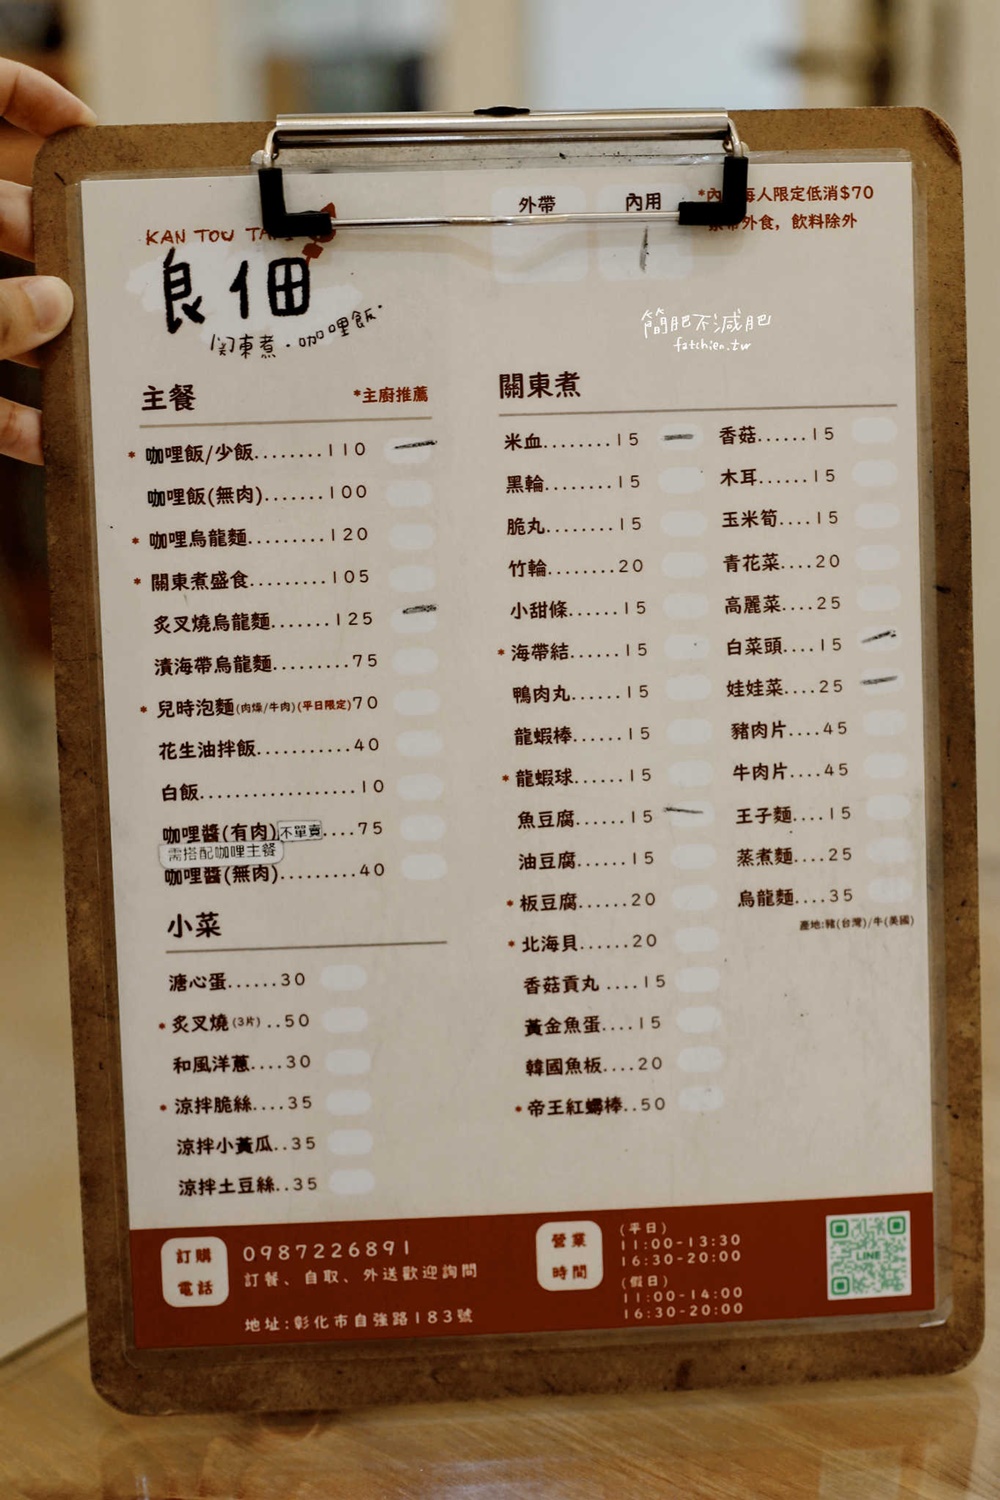 外帶
內用
*內 每人限定低消$70
禁帶外食，飲料除外
KAN TOU
良佃
関東煮·咖哩飯·
簡肥不減肥
fatchien.tw
主餐 *主廚推薦
* 咖哩飯/少飯........110
咖哩飯(無肉).......100
* 咖哩烏龍麵.........120
* 關東煮盛食.........105
炙叉燒烏龍麵.......125
漬海帶烏龍麵.........75
* 兒時泡麵(肉燥/牛肉)(平日限定)70
花生油拌飯..........40
白飯.................10
咖哩醬(有肉)不單賣....75
需搭配咖哩主餐
咖哩醬(無肉)..........40
小菜
溏心蛋......30
* 炙叉燒(3片)..50
和風洋蔥....30
* 涼拌脆絲....35
涼拌小黃瓜..35
涼拌土豆絲..35
關東煮
米血........15
黑輪.........15
脆丸........15
竹輪........20
小甜條......15
* 海帶結......15
鴨肉丸......15
龍蝦棒......15
* 龍蝦球......15
魚豆腐......15
油豆腐......15
* 板豆腐......20
* 北海貝......20
香菇貢丸....15
黃金魚蛋....15
韓國魚板....20
* 帝王紅蟳棒..50
香菇......15
木耳......15
玉米筍....15
青花菜....20
高麗菜....25
白菜頭....15
娃娃菜....25
豬肉片....45
牛肉片....45
王子麵....15
蒸煮麵....25
烏龍麵....35
產地:豬(台灣)/牛(美國)
訂購
電話
0987226891
訂餐、自取、外送歡迎詢問
地址:彰化市自強路183號
營業
時間
(平日)
11:00-13:30
16:30-20:00
(假日)
11:00-14:00
16:30-20:00
LINE